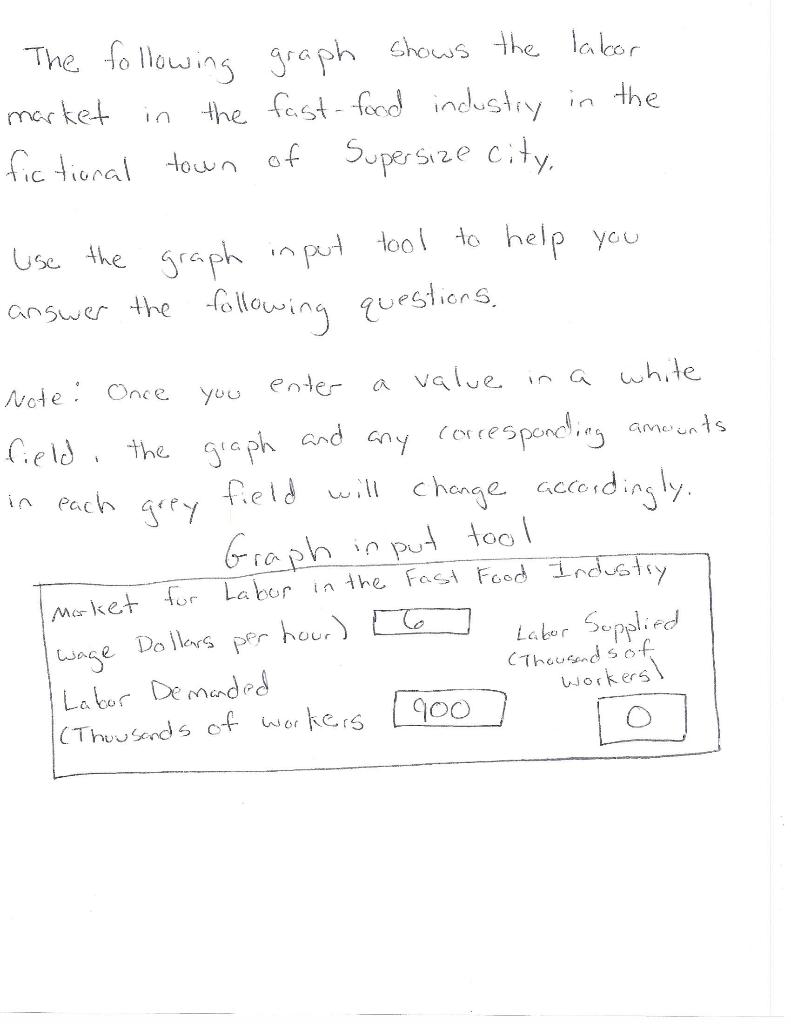 The following graph shows the labor
market in the fast-food industry in the
fictional town of Supersize city.
Use the graph input tool to help you
answer the following questions.
Note: Once you enter a value in a white
field, the graph and any corresponding amounts
in each grey field will change accordingly.
Graph input tool
Market for Labor in the Fast Food Industry
Wage Dollars per hour) 6
Labor Supplied
(Thousands of
workers)
Labor Demanded
(Thousands of workers 900
0